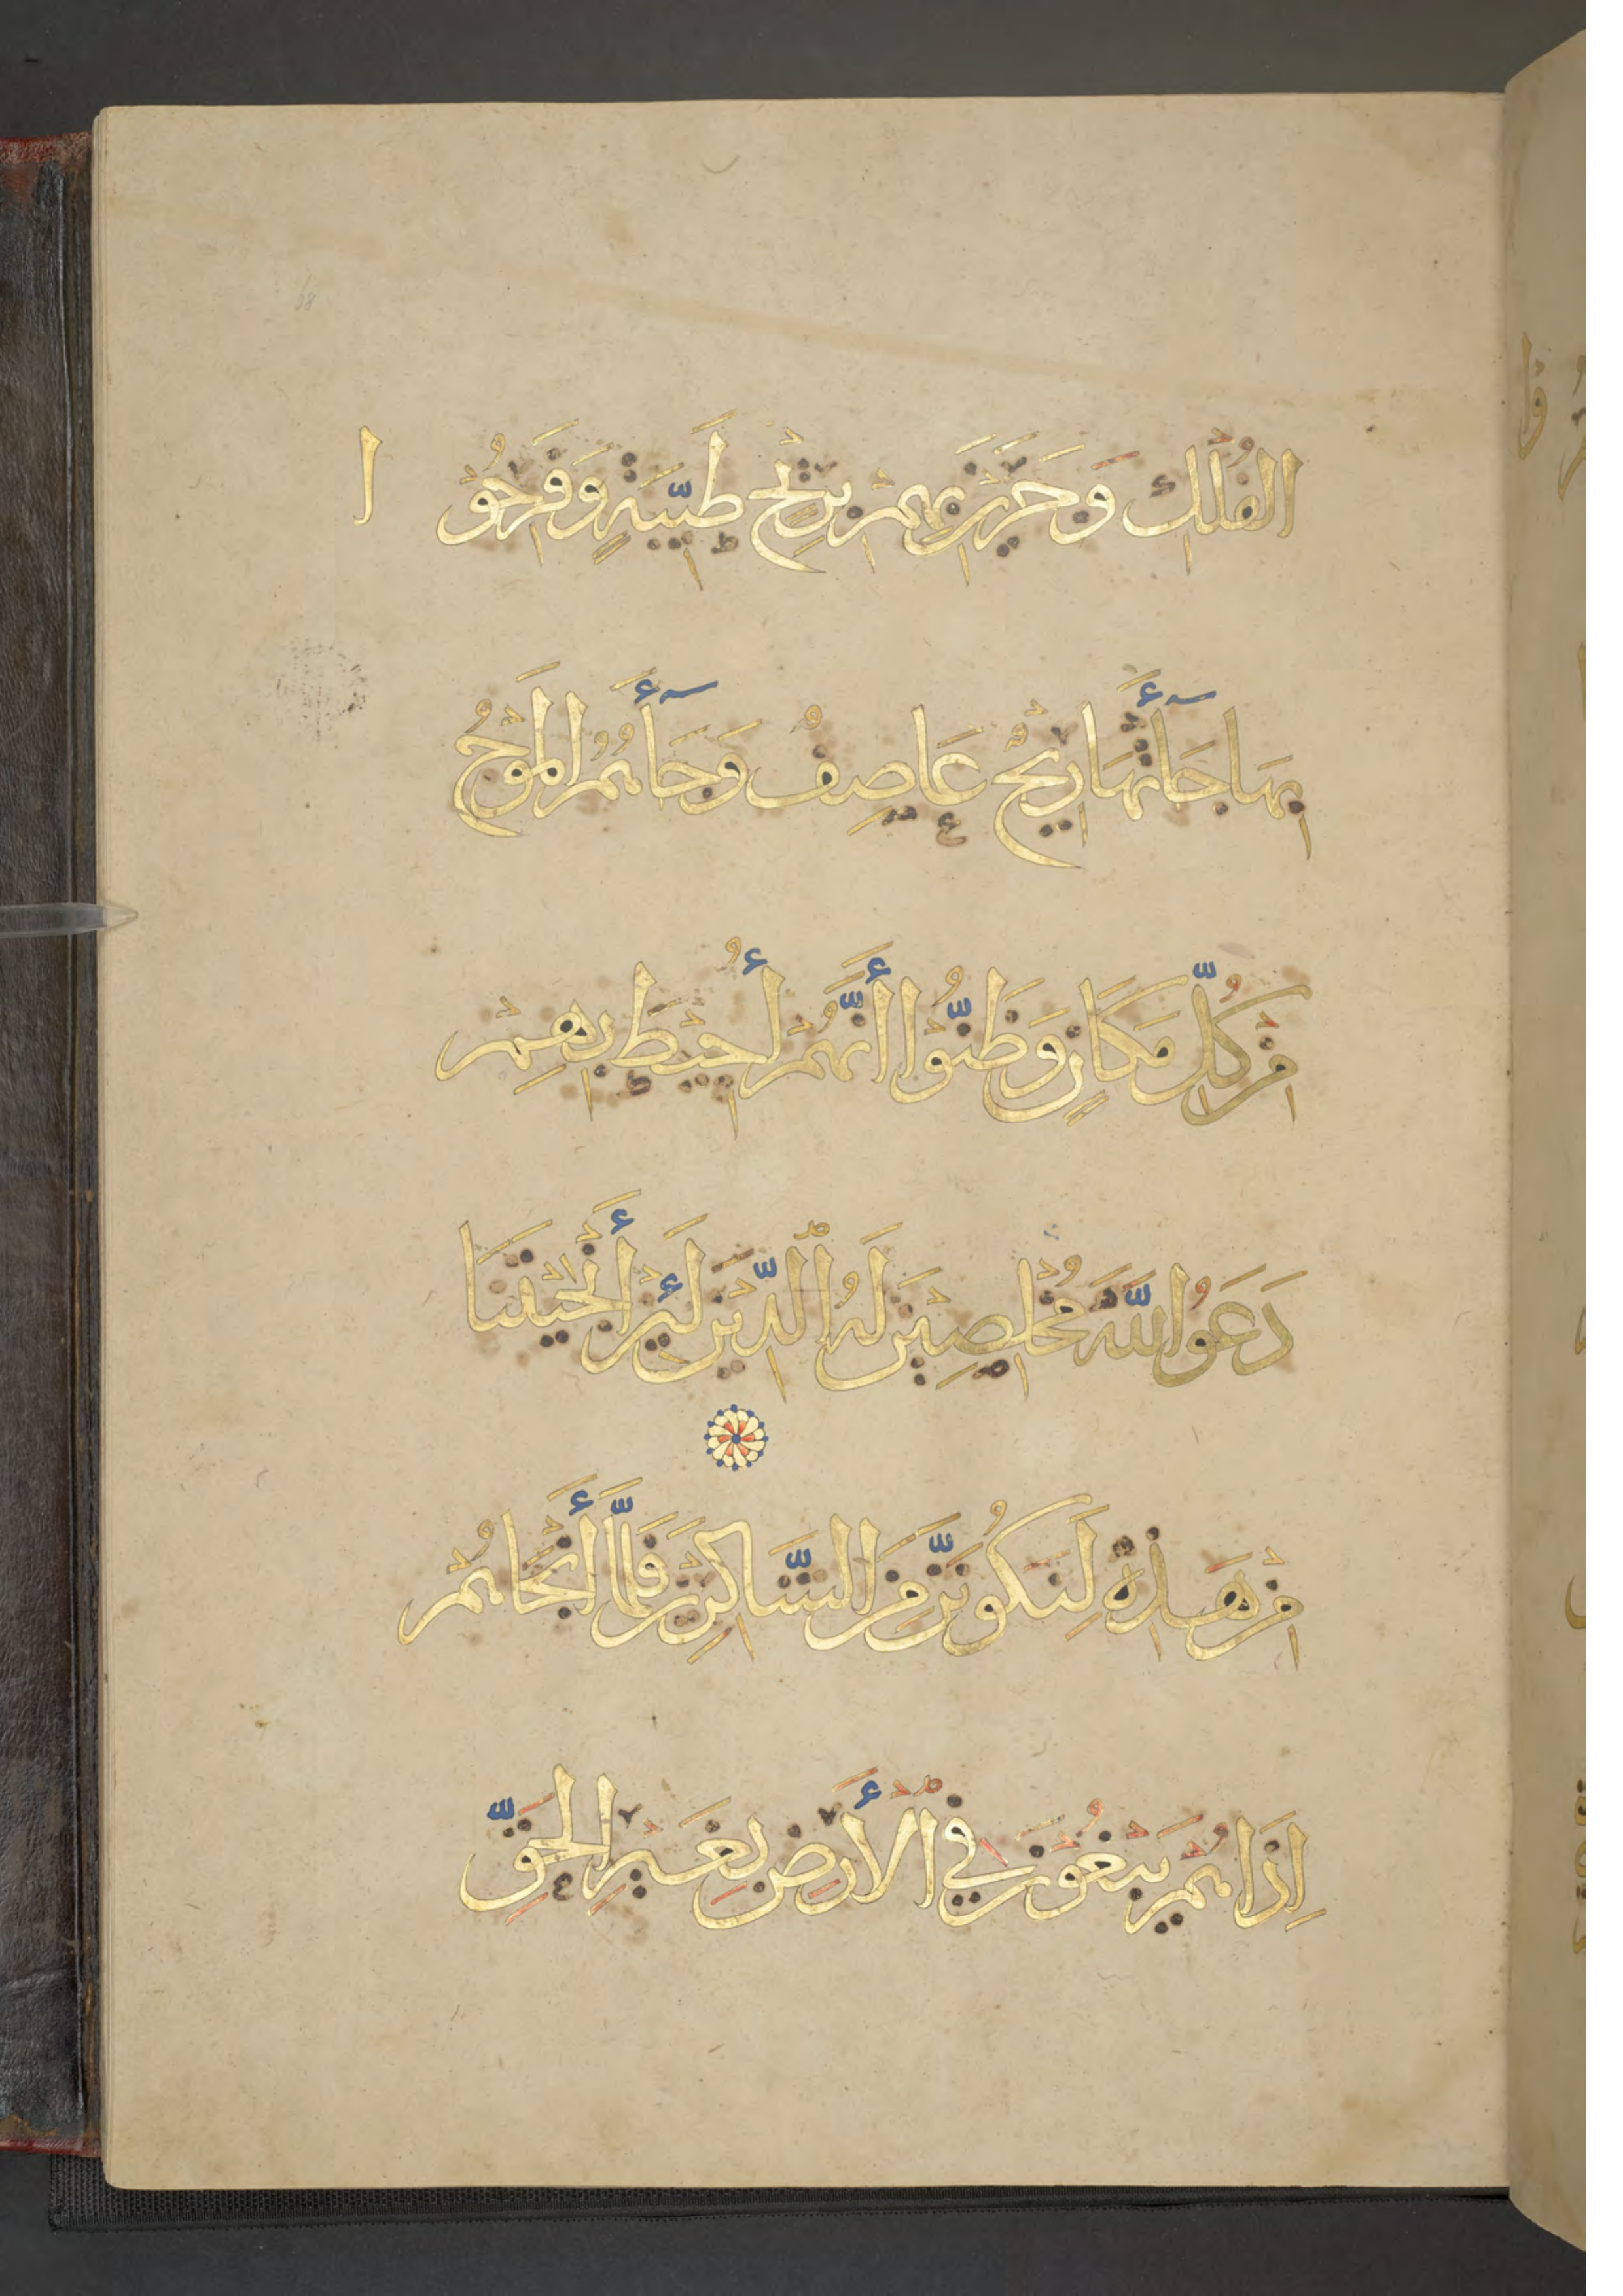 الْفُلْكِ وَجَرَيْنَ بِهِمْ بِرِيحٍ طَيِّبَةٍ وَفَرِحُوْ ا
بِهَا جَآءَتْهَا رِيْحٌ عَاصِفٌ وَجَآءَهُمُ الْمَوْجُ
مِنْ كُلِّ مَكَانٍ وَظَنُّوْا أَنَّهُمْ أُحِيْطَ بِهِمْ
دَعَوُا اللَّهَ مُخْلِصِيْنَ لَهُ الدِّيْنَ لَئِنْ أَنْجَيْتَنَا
مِنْ هَذِهِ لَنَكُوْنَنَّ مِنَ الشَّاكِرِيْنَ فَلَمَّا أَنْجَاهُمْ
إِذَا هُمْ يَبْغُوْنَ فِي الْأَرْضِ بِغَيْرِ الْحَقِّ